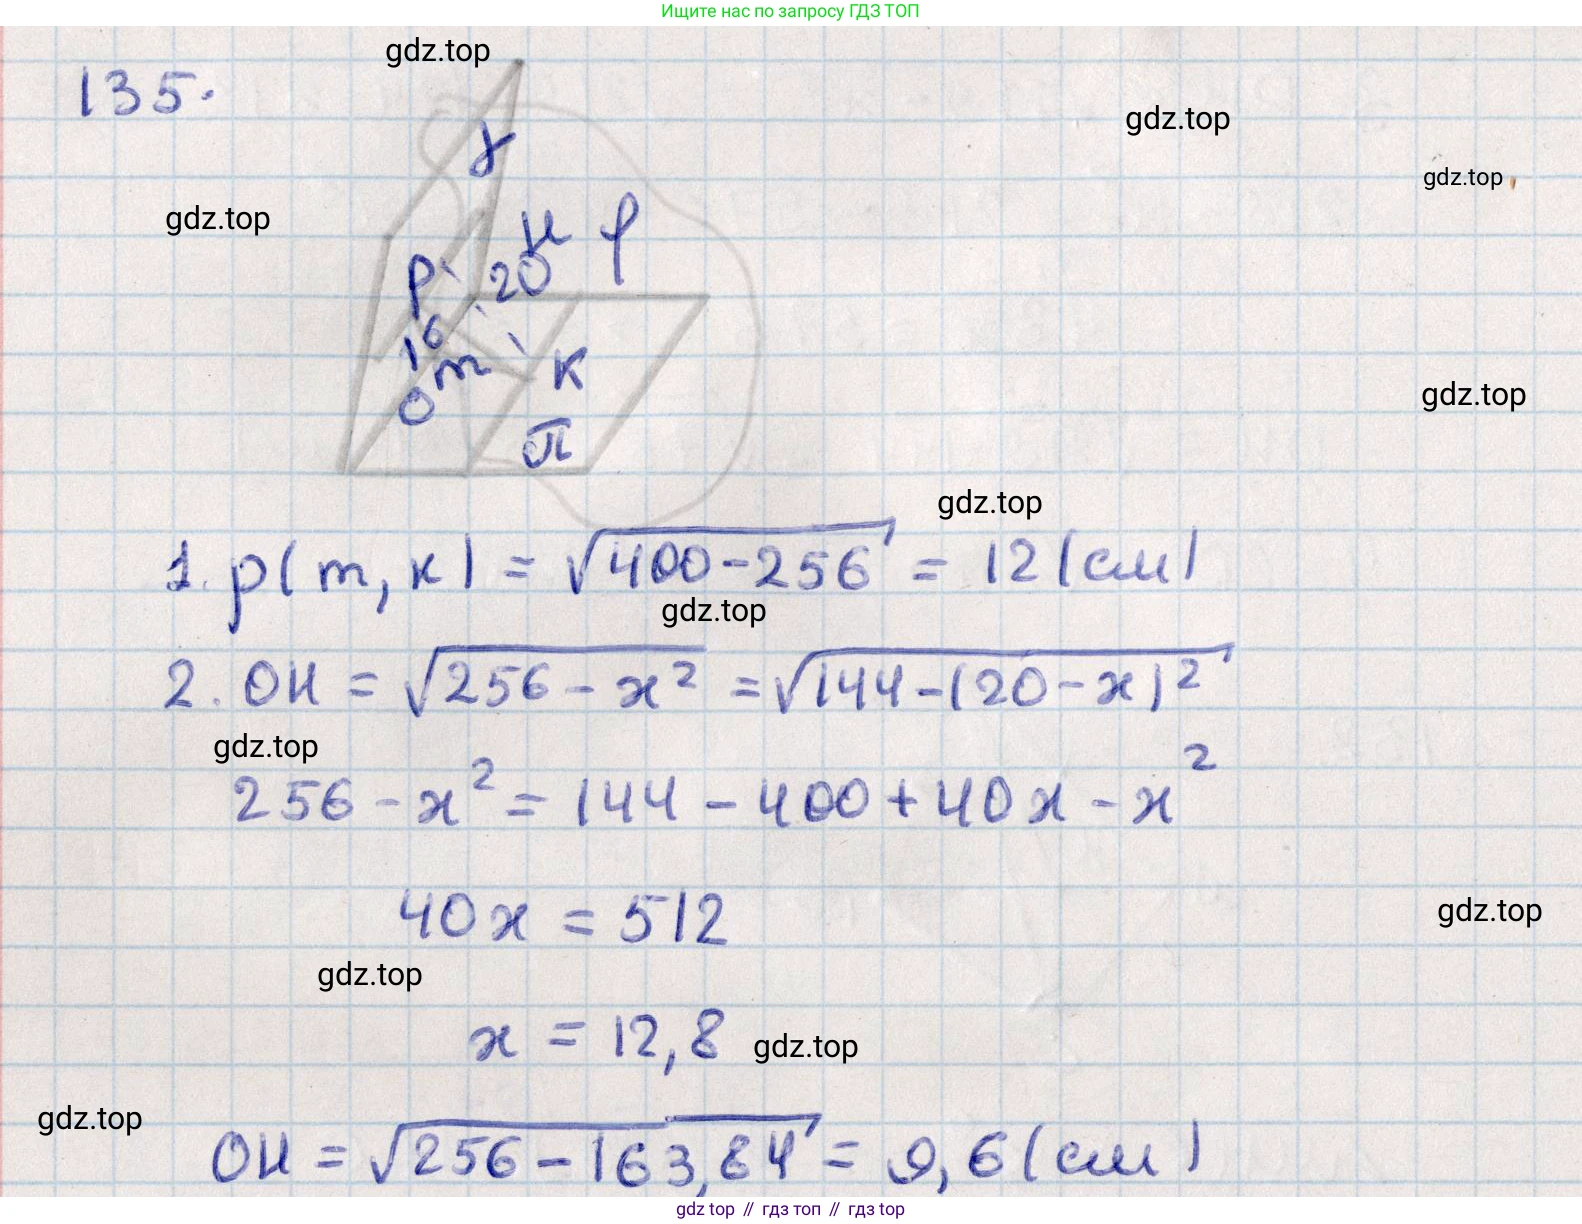 Ищите нас по запросу ГДЗ ТОП
gdz.top
135.
gdz.top
gdz.top
gdz.top
γ
H φ
P 20
16
m K
O
gdz.top
π
gdz.top
1. ρ(m, к) = √400-256 = 12 (см)
gdz.top
2. OH = √256 - x² = √144-(20-x)²
gdz.top
256 - x² = 144 - 400 + 40x - x²
40x = 512
gdz.top
gdz.top
x = 12,8
gdz.top
gdz.top
OH = √256 - 163,84 = 9,6 (см)
gdz top // гдз топ // гдз top